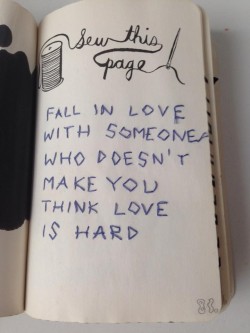 Sew this
page
FALL IN LOVE
WITH SOMEONE
WHO DOESN'T
MAKE YOU
THINK LOVE
IS HARD